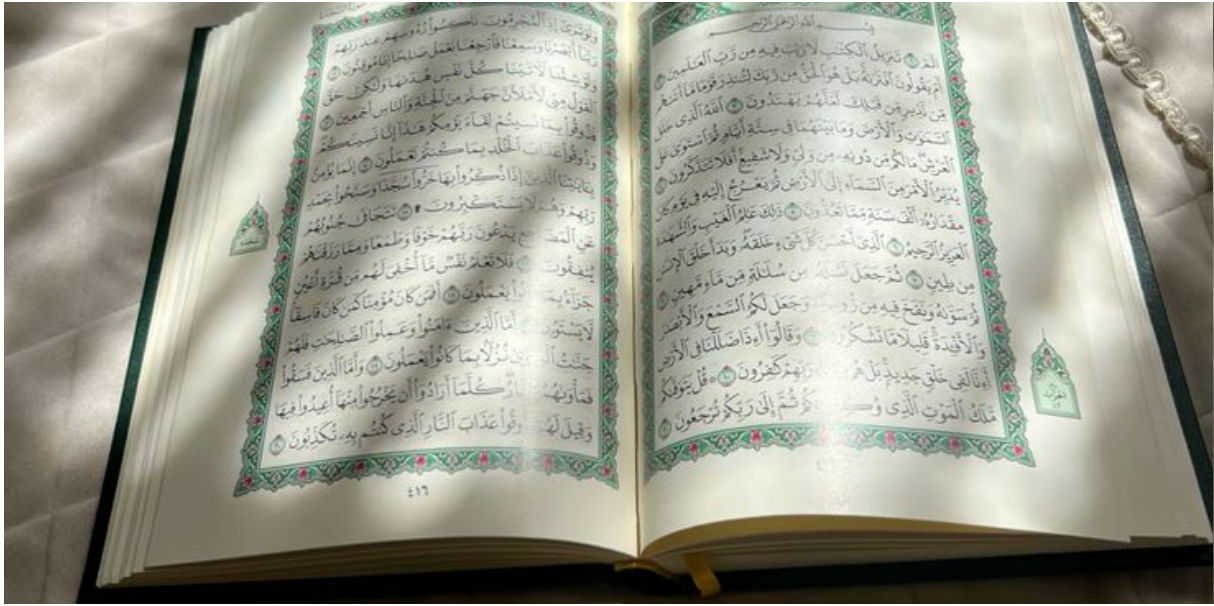 بِسْمِ ٱللَّهِ ٱلرَّحْمَٰنِ ٱلرَّحِيمِ
الٓمٓ ١ تَنزِيلُ ٱلْكِتَٰبِ لَا رَيْبَ فِيهِ مِن رَّبِّ ٱلْعَٰلَمِينَ ٢
أَمْ يَقُولُونَ ٱفْتَرَىٰهُ بَلْ هُوَ ٱلْحَقُّ مِن رَّبِّكَ لِتُنذِرَ قَوْمًا مَّآ أَتَىٰهُم
مِّن نَّذِيرٍ مِّن قَبْلِكَ لَعَلَّهُمْ يَهْتَدُونَ ٣ ٱللَّهُ ٱلَّذِى خَلَقَ
ٱلسَّمَٰوَٰتِ وَٱلْأَرْضَ وَمَا بَيْنَهُمَا فِى سِتَّةِ أَيَّامٍ ثُمَّ ٱسْتَوَىٰ عَلَى
ٱلْعَرْشِ مَا لَكُم مِّن دُونِهِۦ مِن وَلِىٍّ وَلَا شَفِيعٍ أَفَلَا تَتَذَكَّرُونَ ٤
يُدَبِّرُ ٱلْأَمْرَ مِنَ ٱلسَّمَآءِ إِلَى ٱلْأَرْضِ ثُمَّ يَعْرُجُ إِلَيْهِ فِى يَوْمٍ كَانَ
مِقْدَارُهُۥٓ أَلْفَ سَنَةٍ مِّمَّا تَعُدُّونَ ٥ ذَٰلِكَ عَٰلِمُ ٱلْغَيْبِ وَٱلشَّهَٰدَةِ
ٱلْعَزِيزُ ٱلرَّحِيمُ ٦ ٱلَّذِىٓ أَحْسَنَ كُلَّ شَىْءٍ خَلَقَهُۥ وَبَدَأَ خَلْقَ ٱلْإِنسَٰنِ
مِن طِينٍ ٧ ثُمَّ جَعَلَ نَسْلَهُۥ مِن سُلَٰلَةٍ مِّن مَّآءٍ مَّهِينٍ ٨
ثُمَّ سَوَّىٰهُ وَنَفَخَ فِيهِ مِن وَجَعَلَ لَكُمُ ٱلسَّمْعَ وَٱلْأَبْصَٰرَ
وَٱلْأَفْـِٔدَةَ قَلِيلًا مَّا تَشْكُرُونَ وَقَالُوٓا۟ أَءِذَا ضَلَلْنَا فِى ٱلْأَرْضِ
أَءِنَّا لَفِى خَلْقٍ جَدِيدٍۭ بَلْ هُم رَبِّهِمْ كَٰفِرُونَ ١٠ قُلْ يَتَوَفَّىٰكُم
مَّلَكُ ٱلْمَوْتِ ٱلَّذِى ثُمَّ إِلَىٰ رَبِّكُمْ تُرْجَعُونَ ١١
وَلَوْ تَرَىٰٓ إِذِ ٱلْمُجْرِمُونَ نَاكِسُوا۟ رُءُوسِهِمْ عِندَ رَبِّهِمْ
رَبَّنَآ أَبْصَرْنَا وَسَمِعْنَا فَٱرْجِعْنَا نَعْمَلْ صَٰلِحًا إِنَّا مُوقِنُونَ ١٢
وَلَوْ شِئْنَا لَءَاتَيْنَا كُلَّ نَفْسٍ هُدَىٰهَا وَلَٰكِنْ حَقَّ
ٱلْقَوْلُ مِنِّى لَأَمْلَأَنَّ جَهَنَّمَ مِنَ ٱلْجِنَّةِ وَٱلنَّاسِ أَجْمَعِينَ ١٣
فَذُوقُوا۟ بِمَا نَسِيتُمْ لِقَآءَ يَوْمِكُمْ هَٰذَآ إِنَّا نَسِينَٰكُمْ
وَذُوقُوا۟ عَذَابَ ٱلْخُلْدِ بِمَا كُنتُمْ تَعْمَلُونَ ١٤ إِنَّمَا يُؤْمِنُ
بِـَٔايَٰتِنَا ٱلَّذِينَ إِذَا ذُكِّرُوا۟ بِهَا خَرُّوا۟ سُجَّدًا وَسَبَّحُوا۟ بِحَمْدِ
رَبِّهِمْ وَهُمْ لَا يَسْتَكْبِرُونَ ۩ ١٥ تَتَجَافَىٰ جُنُوبُهُمْ
عَنِ ٱلْمَضَاجِعِ يَدْعُونَ رَبَّهُمْ خَوْفًا وَطَمَعًا وَمِمَّا رَزَقْنَٰهُمْ
يُنفِقُونَ فَلَا تَعْلَمُ نَفْسٌ مَّآ أُخْفِىَ لَهُم مِّن قُرَّةِ أَعْيُنٍ
جَزَآءًۢ بِمَا يَعْمَلُونَ ١٧ أَفَمَن كَانَ مُؤْمِنًا كَمَن كَانَ فَاسِقًا
لَّا يَسْتَوُۥنَ أَمَّا ٱلَّذِينَ ءَامَنُوا۟ وَعَمِلُوا۟ ٱلصَّٰلِحَٰتِ فَلَهُمْ
جَنَّٰتُ نُزُلًۢا بِمَا كَانُوا۟ يَعْمَلُونَ ١٩ وَأَمَّا ٱلَّذِينَ فَسَقُوا۟
فَمَأْوَىٰهُمُ كُلَّمَآ أَرَادُوٓا۟ أَن يَخْرُجُوا۟ مِنْهَآ أُعِيدُوا۟ فِيهَا
وَقِيلَ لَهُمْ ذُوقُوا۟ عَذَابَ ٱلنَّارِ ٱلَّذِى كُنتُم بِهِۦ تُكَذِّبُونَ ٢٠
٤١٦